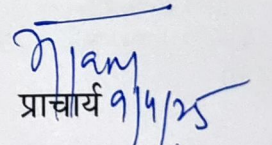 प्राचार्य 9/4/25